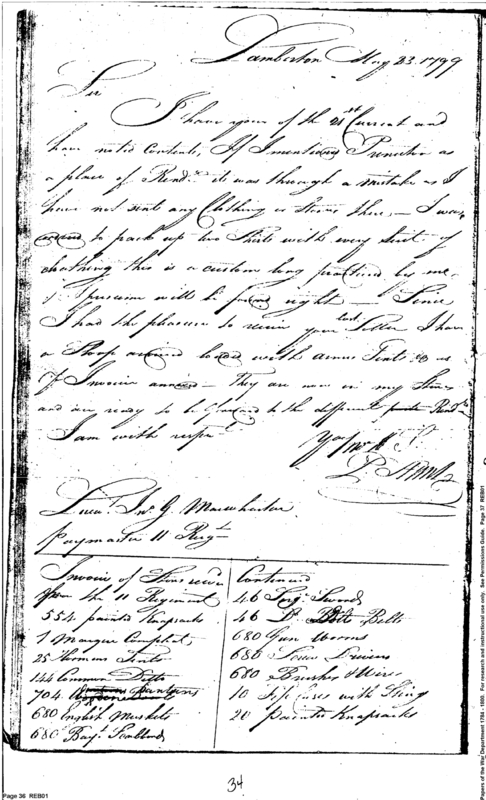 Lamberton May 23. 1799
Sir
I have yours of the 21st Current and
have noted Contents, If I mentioned Princeton as
a place of Rendzs it was through a mistake as I
have not sent any Clothing or Stores there, — I was
to pack up two Shirts with every Suit of
cloathing this is a custom long practiced by me,
& I presume will be found right — Since
I had the pleasure to receive your last Letter I have
a Sloop arrived loaded with arms Tents &c as
Invoice annexed — They are now in my Store
and are ready to be forward to the different Rendzs
I am with respt
Yor Mo H S.
P. Hunt
Lieut. Jno. G. Macwhorter
paymaster 11 Regt
Invoice of Stores recd
for the 11 Regiment
554 painted Knapsacks
1 Marque Complete
25 Horsemans Tents
144 Common Ditto
704 Canteens
680 English Muskets
680 Bayt. Scabbards
Continued
46 Serjts Swords
46 Do Belts
680 Gun Worms
680 Screw Drivers
680 Brushes & Wires
10 Fife cases with Sling
20 Painted Knapsacks
34
Page 36 REB01
Papers of the War Department 1784 - 1800. For research and instructional use only, see Permissions Guide. Page 37 REB01